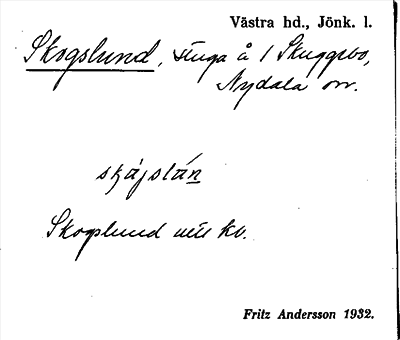 Västra hd., Jönk. l.
Skogslund, stuga å 1 Skuggebo,
Nydala sn.
skájslán
Skogslund uill kv.
Fritz Andersson 1932.